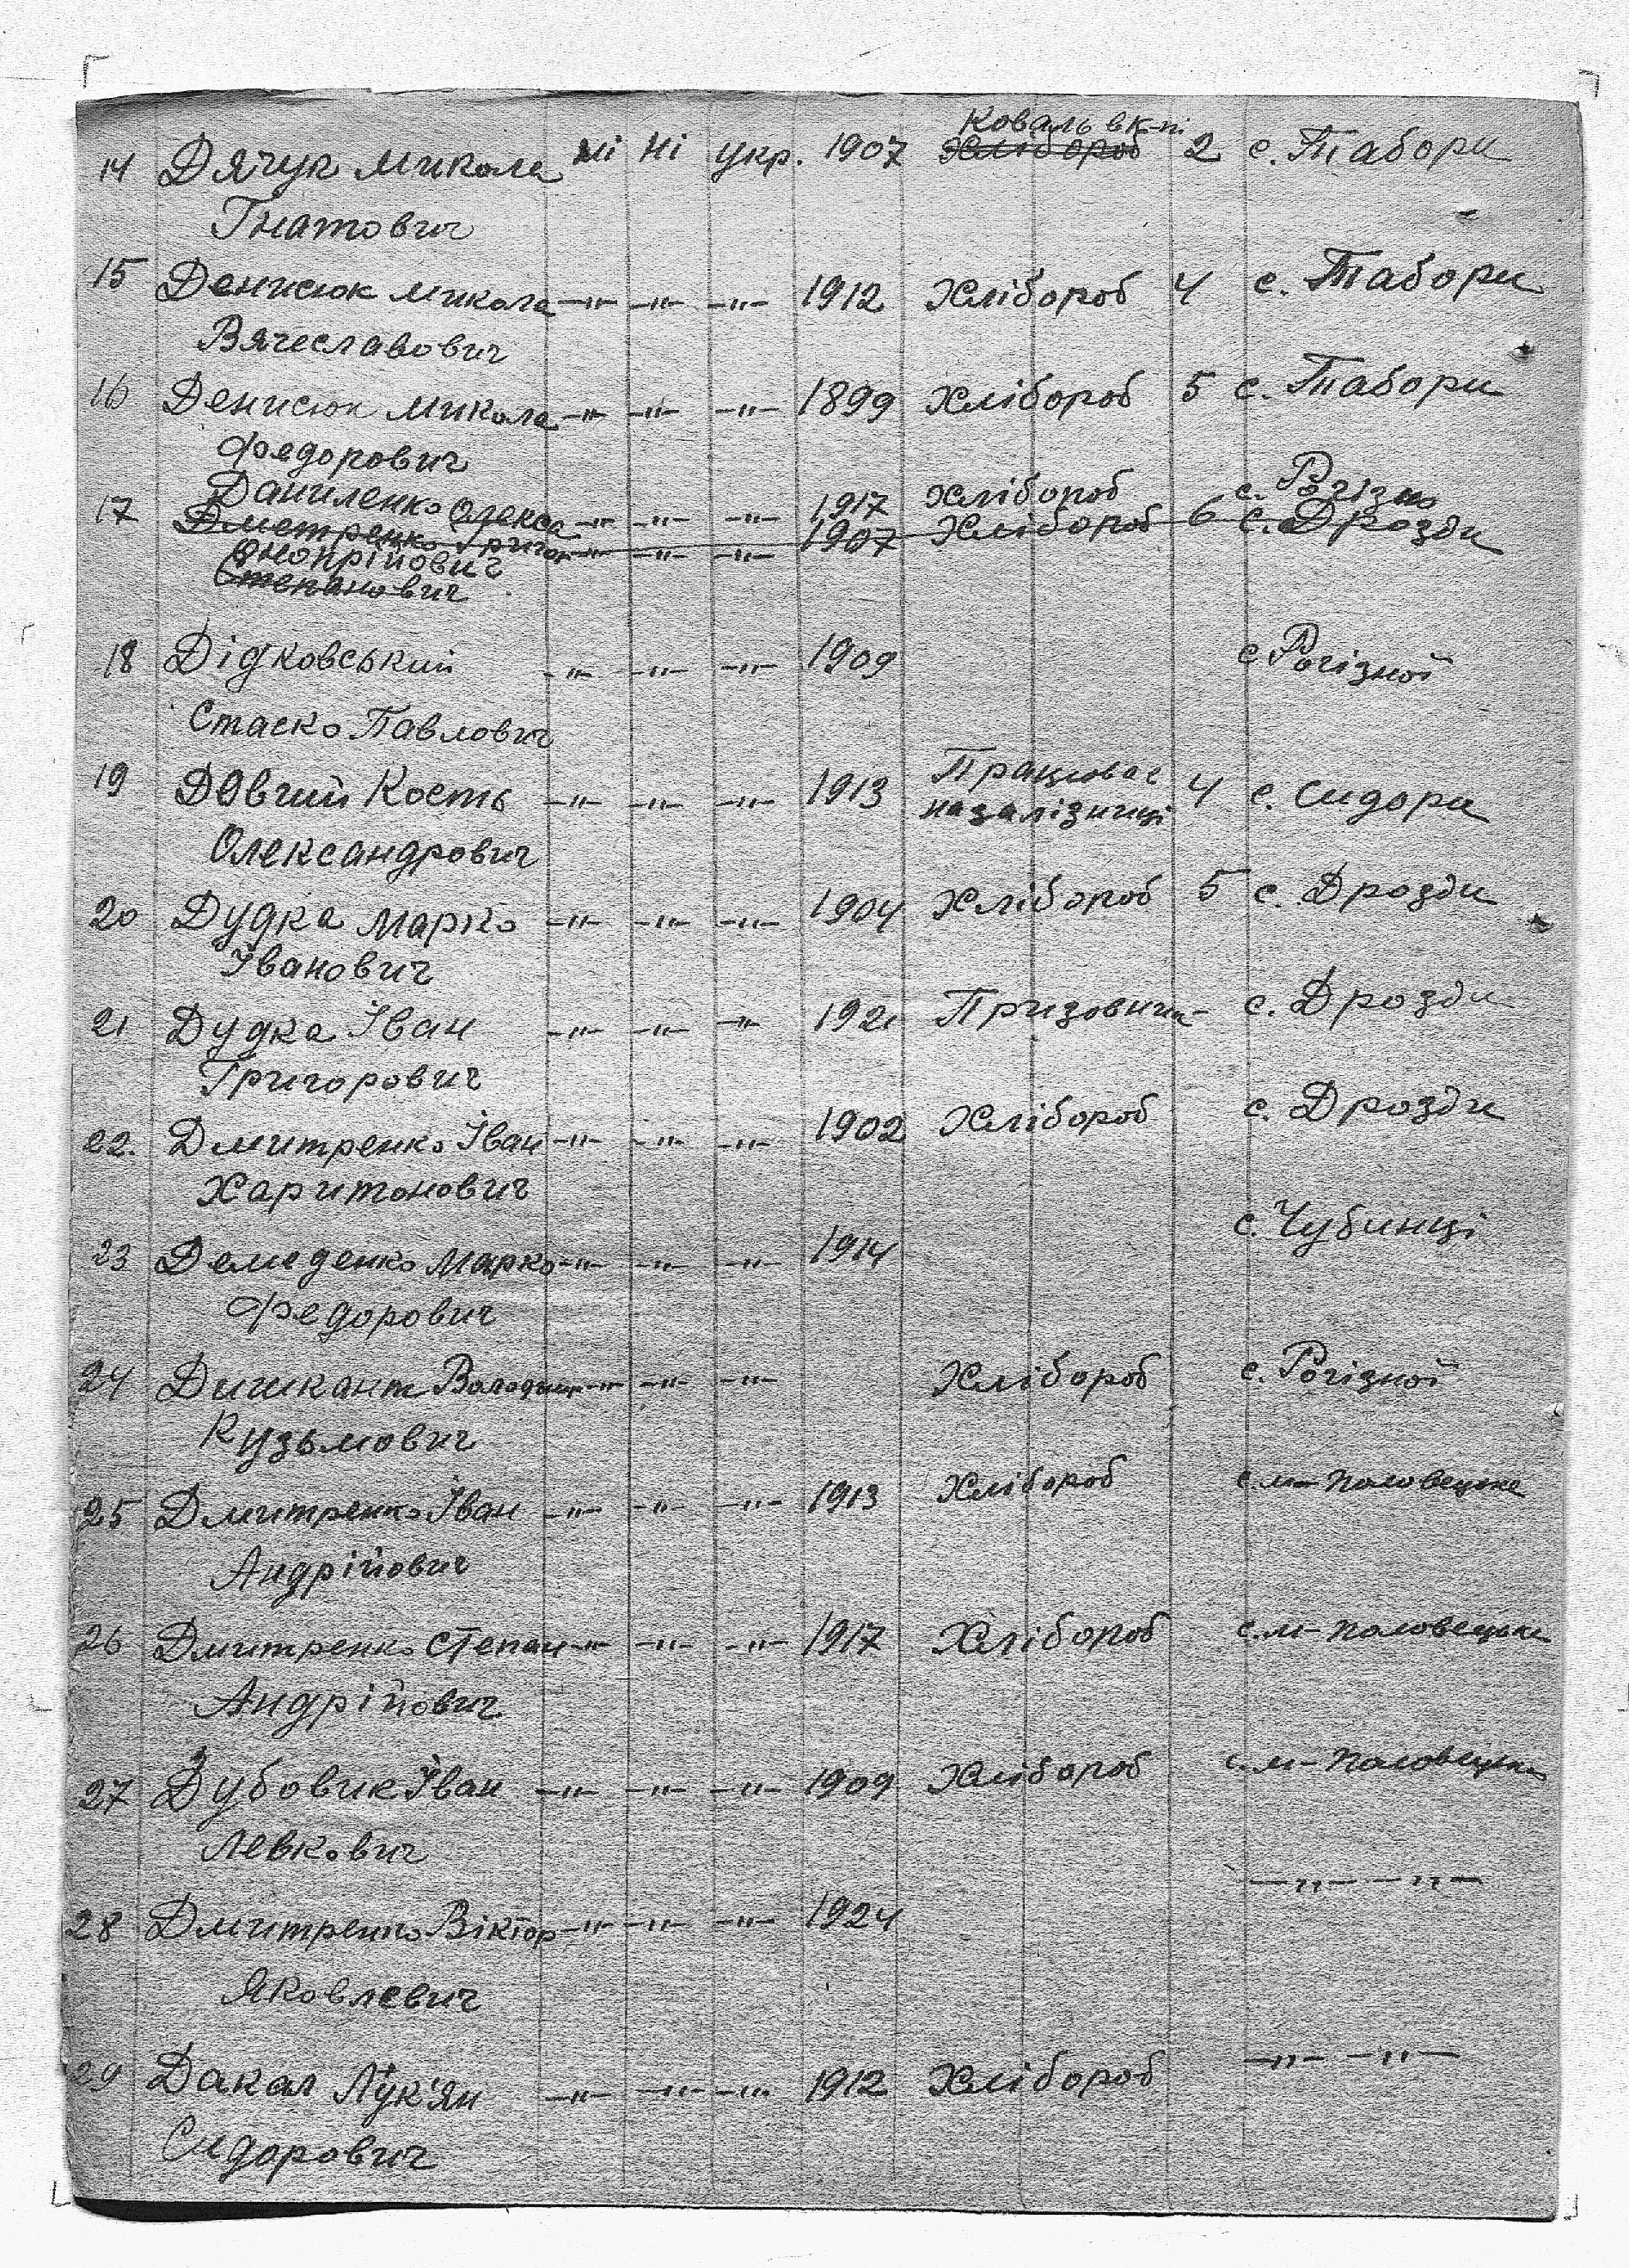 Коваль в к-пі
14 Дячук Микола ні ні укр. 1907 Хлібороб 2 с. Табори
Гнатович
15 Денисюк Микола -"- -"- -"- 1912 Хлібороб 4 с. Табори
Вячеславович
16 Денисюк Микола -"- -"- -"- 1899 Хлібороб 5 с. Табори
Федорович
17 Даниленко Олекса -"- -"- -"- 1917 Хлібороб с. Рогізно
Дметренко Григор -"- -"- -"- 1907 Хлібороб 6 с. Дрозди
Онопрійович
Степанович
18 Дідковський -"- -"- -"- 1909 с. Рогізної
Стаско Павлович
19 Довгий Кость -"- -"- -"- 1913 Працював на залізниці 4 с. Сидори
Олександрович
20 Дудка Марко -"- -"- -"- 1904 Хлібороб 5 с. Дрозди
Іванович
21 Дудка Іван -"- -"- -"- 1921 Призовник - с. Дрозди
Григорович
22. Дмитренко Іван -"- -"- -"- 1902 Хлібороб с. Дрозди
Харитонович
23 Демеденко Марко -"- -"- -"- 1914 с. Чубинці
Федорович
24 Дишкант Володимир -"- -"- -"- Хлібороб с. Рогізної
Кузьмович
25 Дмитренко Іван -"- -"- -"- 1913 Хлібороб с. м-половецьке
Андрійович
26 Дмитренко Степан -"- -"- -"- 1917 Хлібороб с. м-половецьке
Андрійович
27 Дубовик Іван -"- -"- -"- 1909 Хлібороб с. м-половецьке
Левкович
28 Дмитренко Віктор -"- -"- -"- 1924 -"- -"-
Яковлевич
29 Дакал Лук'ян -"- -"- -"- 1912 Хлібороб -"- -"-
Сидорович